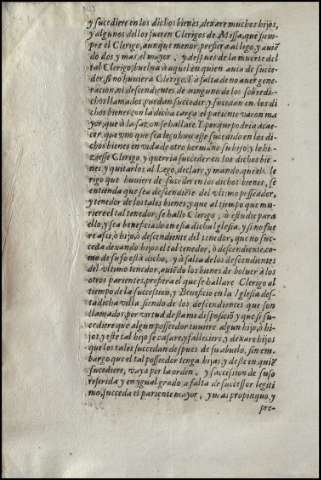 y sucediere en los dichos bienes, dexare muchos hijos,
y algunos dellos fueren Clerigos de Missa, que siem-
pre el Clerigo, aunque menor, prefiera al lego, y auiẽ
do dos y mas, el mayor, y despues de la muerte del
tal Clerigo, buelua a aquel en quien auia de succe-
der, si no huuiera Clerigo. Y a falta de no auer gene
racion, ni descendientes de ninguno de los sobredi-
chos llamados puedan succeder y sucedan en los di
chos bienes con la dicha carga el pariente varon ma
yor, que à la sazon se hallare. Y porque podria atae-
cer, que vno que sea lego huuiesse sucedido en los di-
chos bienes en vida de otro hermano, su hijo, y se hi-
ziesse Clerigo, y querria succeder en los dichos bie-
nes, y quitarlos al Lego, declaro, y mando, que el Cle
rigo que huuiere de succeder en los dichos bienes, se
entienda que sea descendiẽte del vltimo posseedor,
y tenedor de los tales bienes, y que al tiempo que mu
riere el tal tenedor, se halle Clerigo, ò estudie para
ello, y sea beneficiado en esta dicha Iglesia, y si no fue
re assi, ò hijo, ò descendiente del tenedor, que no suc
ceda dexando hijos el tal tenedor, ò descendiente, co-
mo de suso està dicho, y à falta de los descendientes
del vltimo tenedor, auiẽdo los bienes de boluer à los
otros parientes, prefiera el que se hallare Clerigo al
tiempo de la succession, y Beneficio en la Iglesia des-
ta dicha villa siendo de los descendientes que son
llamados por virtud desta mi disposiciõ, y que si su-
cediere que algun posseedor tuuiere algun hijo, ò hi-
jos, y este tal hijo se casare, y falleciere y dexare hijos
que los tales succedan despues de su abuelo, sin em-
bargo que el tal possedor tenga hijas, y de en quiẽ
succediere, vaya por la orden, y succession de suso
referida, y en ygual grado a falta de successor legiti
mo, succeda el pariente mayor, y mas propinquo, y
pre-